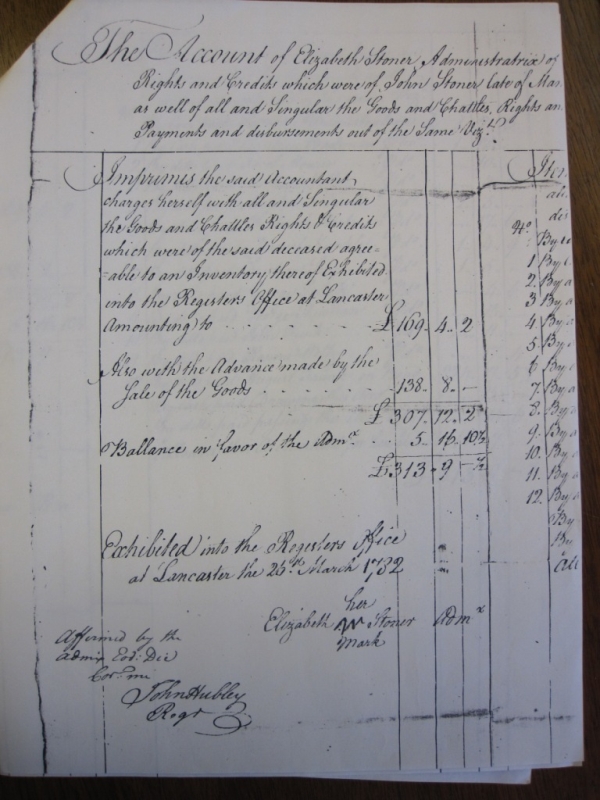 The Account of Elizabeth Stoner Administratrix of
Rights and Credits which were of John Stoner late of Man
as well of all and Singular the Goods and Chattles, Rights an
Payments and disbursements out of the Same Vizt.
Imprimis the said Accountant
charges herself with all and Singular
the Goods and Chattles Rights & Credits
which were of the said deceased agree-
-able to an Inventory thereof Exhibited
into the Registers Office at Lancaster
Amounting to . . . . . . £ 169. 4. 2
Also with the Advance made by the
Sale of the Goods . . . . . . 138. 8. —
£ 307. 12. 2
Ballance in favor of the Admx. . . 5. 16. 10½
£ 313. 9 — ½
Exhibited into the Registers Office
at Lancaster the 25th March 1782
her
Elizabeth W Stoner Admx
Mark
Affirmed by the
Admix Eod: Die
Cor: me
John Hubley
Regr
Item
No.
By
1 By
2. By a
3 By a
4 By a
5. By
6 By
7. By a
8. By
9. By a
10. By a
11. By a
12. By a
By